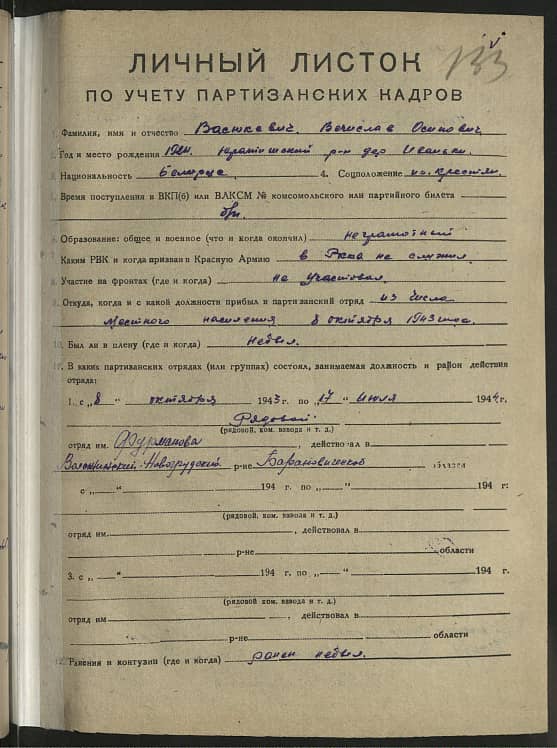 133
ЛИЧНЫЙ ЛИСТОК
ПО УЧЕТУ ПАРТИЗАНСКИХ КАДРОВ
1. Фамилия, имя и отчество Васюкевич Вечислав Осипович
2. Год и место рождения Юратишский р-н дер Иваньки
3. Национальность Беларус 4. Соцположение из крестьян
5. Время поступления в ВКП(б) или ВЛКСМ № комсомольского или партийного билета
б/п
6. Образование: общее и военное (что и когда окончил) неграмотный
7. Каким РВК и когда призван в Красную Армию в Ркка не служил
8. Участие на фронтах (где и когда) не участвовал
9. Откуда, когда и с какой должности прибыл и партизанский отряд из числа
местного населения 8 октября 1943 года.
10. Был ли в плену (где и когда) небыл.
11. В каких партизанских отрядах (или группах) состоял, занимаемая должность и район действия
отряда:
1. с „8“ октября 1943 г. по „17“ июля 1944 г.
Рядовой
(рядовой, ком. взвода и т. д.)
отряд им. Фурманова, действовал в
Воложинский-Новогрудский р-не Барановической области
с „ “ 194 г. по „ “ 194 г:
(рядовой, ком. взвода и т. д.)
отряд им , действовал в
р-не области
3. с „ “ 194 г. по „ “ 194 г.
(рядовой ком. взвода и т. д.)
отряд им , действовал в
р-не области
12. Ранения и контузии (где и когда) ранен небыл.